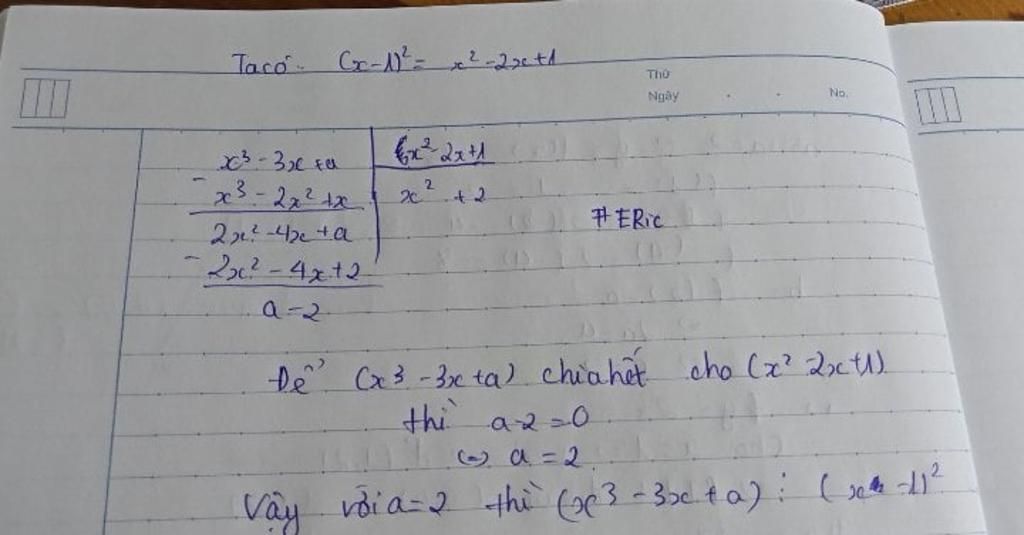 Ta có (x-1)² = x² - 2x + 1
Thứ
Ngày . . No.
x³ - 3x + a | x² - 2x + 1
- x³ - 2x² + x | x² + 2
2x² - 4x + a
#ERic
- 2x² - 4x + 2
a - 2
Để (x³ - 3x + a) chia hết cho (x² - 2x + 1)
thì a - 2 = 0
(=) a = 2
Vậy với a = 2 thì (x³ - 3x + a) ⋮ (x - 1)²